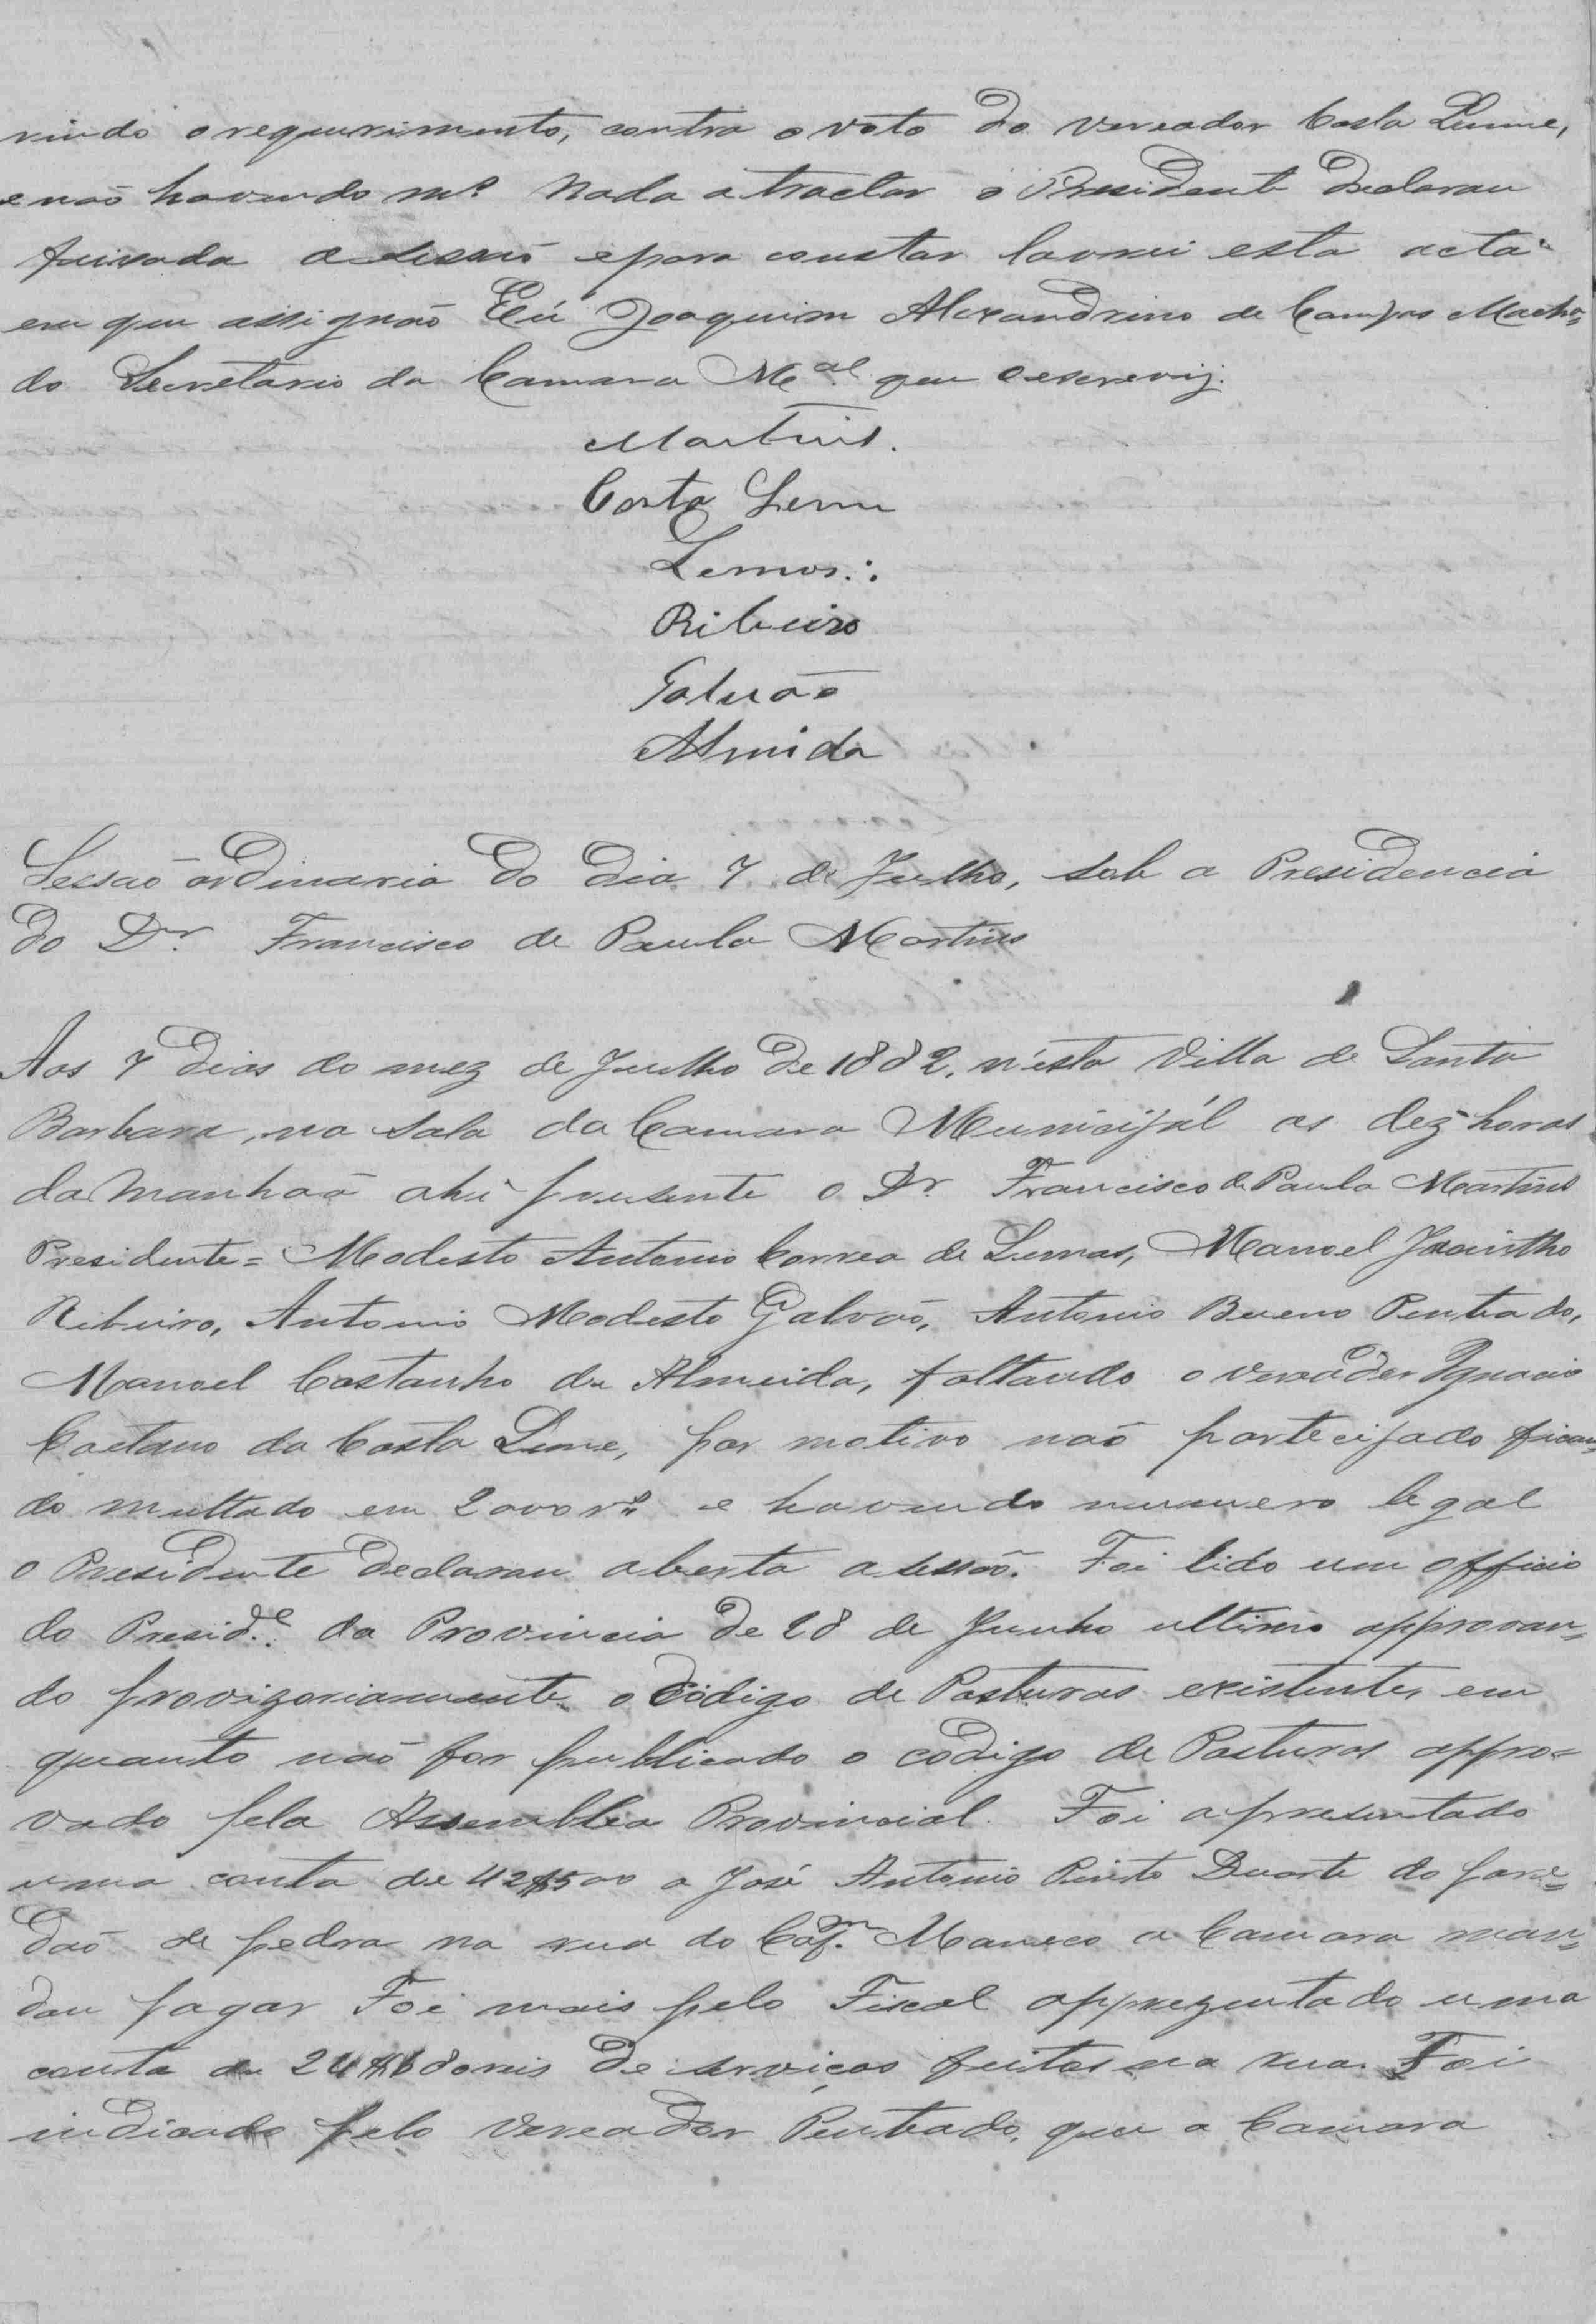 rindo o requerimento, contra o voto do vereador Costa Leme,
e não havendo m.s nada a tractar o Presidente declarou
feixada a sessão e para constar lavrei esta acta
em que assignão Eu Joaquim Alexandrino de Campos Macha-
do Secretario da Camara M.al que o escreviy.
Martins.
Costa Leme
Lemos.:
Ribeiro
Galvão
Almeida
Sessão ordinaria do dia 7 de Julho, sob a Presidencia
do Dr. Francisco de Paula Martins
Aos 7 dias do mez de Julho de 1882, n'esta Villa de Santa
Barbara, na sala da Camara Municipal as dez horas
da manhaã ahi presente o Dr. Francisco de Paula Martins
Presidente = Modesto Antonio Correa de Lemos, Manoel Jacintho
Ribeiro, Antonio Modesto Galvão, Antonio Bueno Penteado,
Manoel Castanho de Almeida, faltando o vereador Ignacio
Caetano da Costa Leme, por motivo não partecipado fican-
do multado em 2000 r.s e havendo numero legal
o Presidente declarou aberta a sessão. Foi lido um officio
do Presid.e da Provincia de 28 de Junho ultimo approvan-
do provizoriamente o Codigo de Posturas existente, em
quanto não for publicado o codigo de Posturas appro-
vado pela Assemblea Provincial. Foi apresentado
uma conta de 42$500 a José Antonio Pinto Duarte do pare-
dão de pedra na rua do Cap.m Maneco a Camara man-
dou pagar Foi mais pelo Fiscal apprezentado uma
conta de reis de serviços feitos na rua. Foi
indicado pelo vereador Penteado, que a Camara